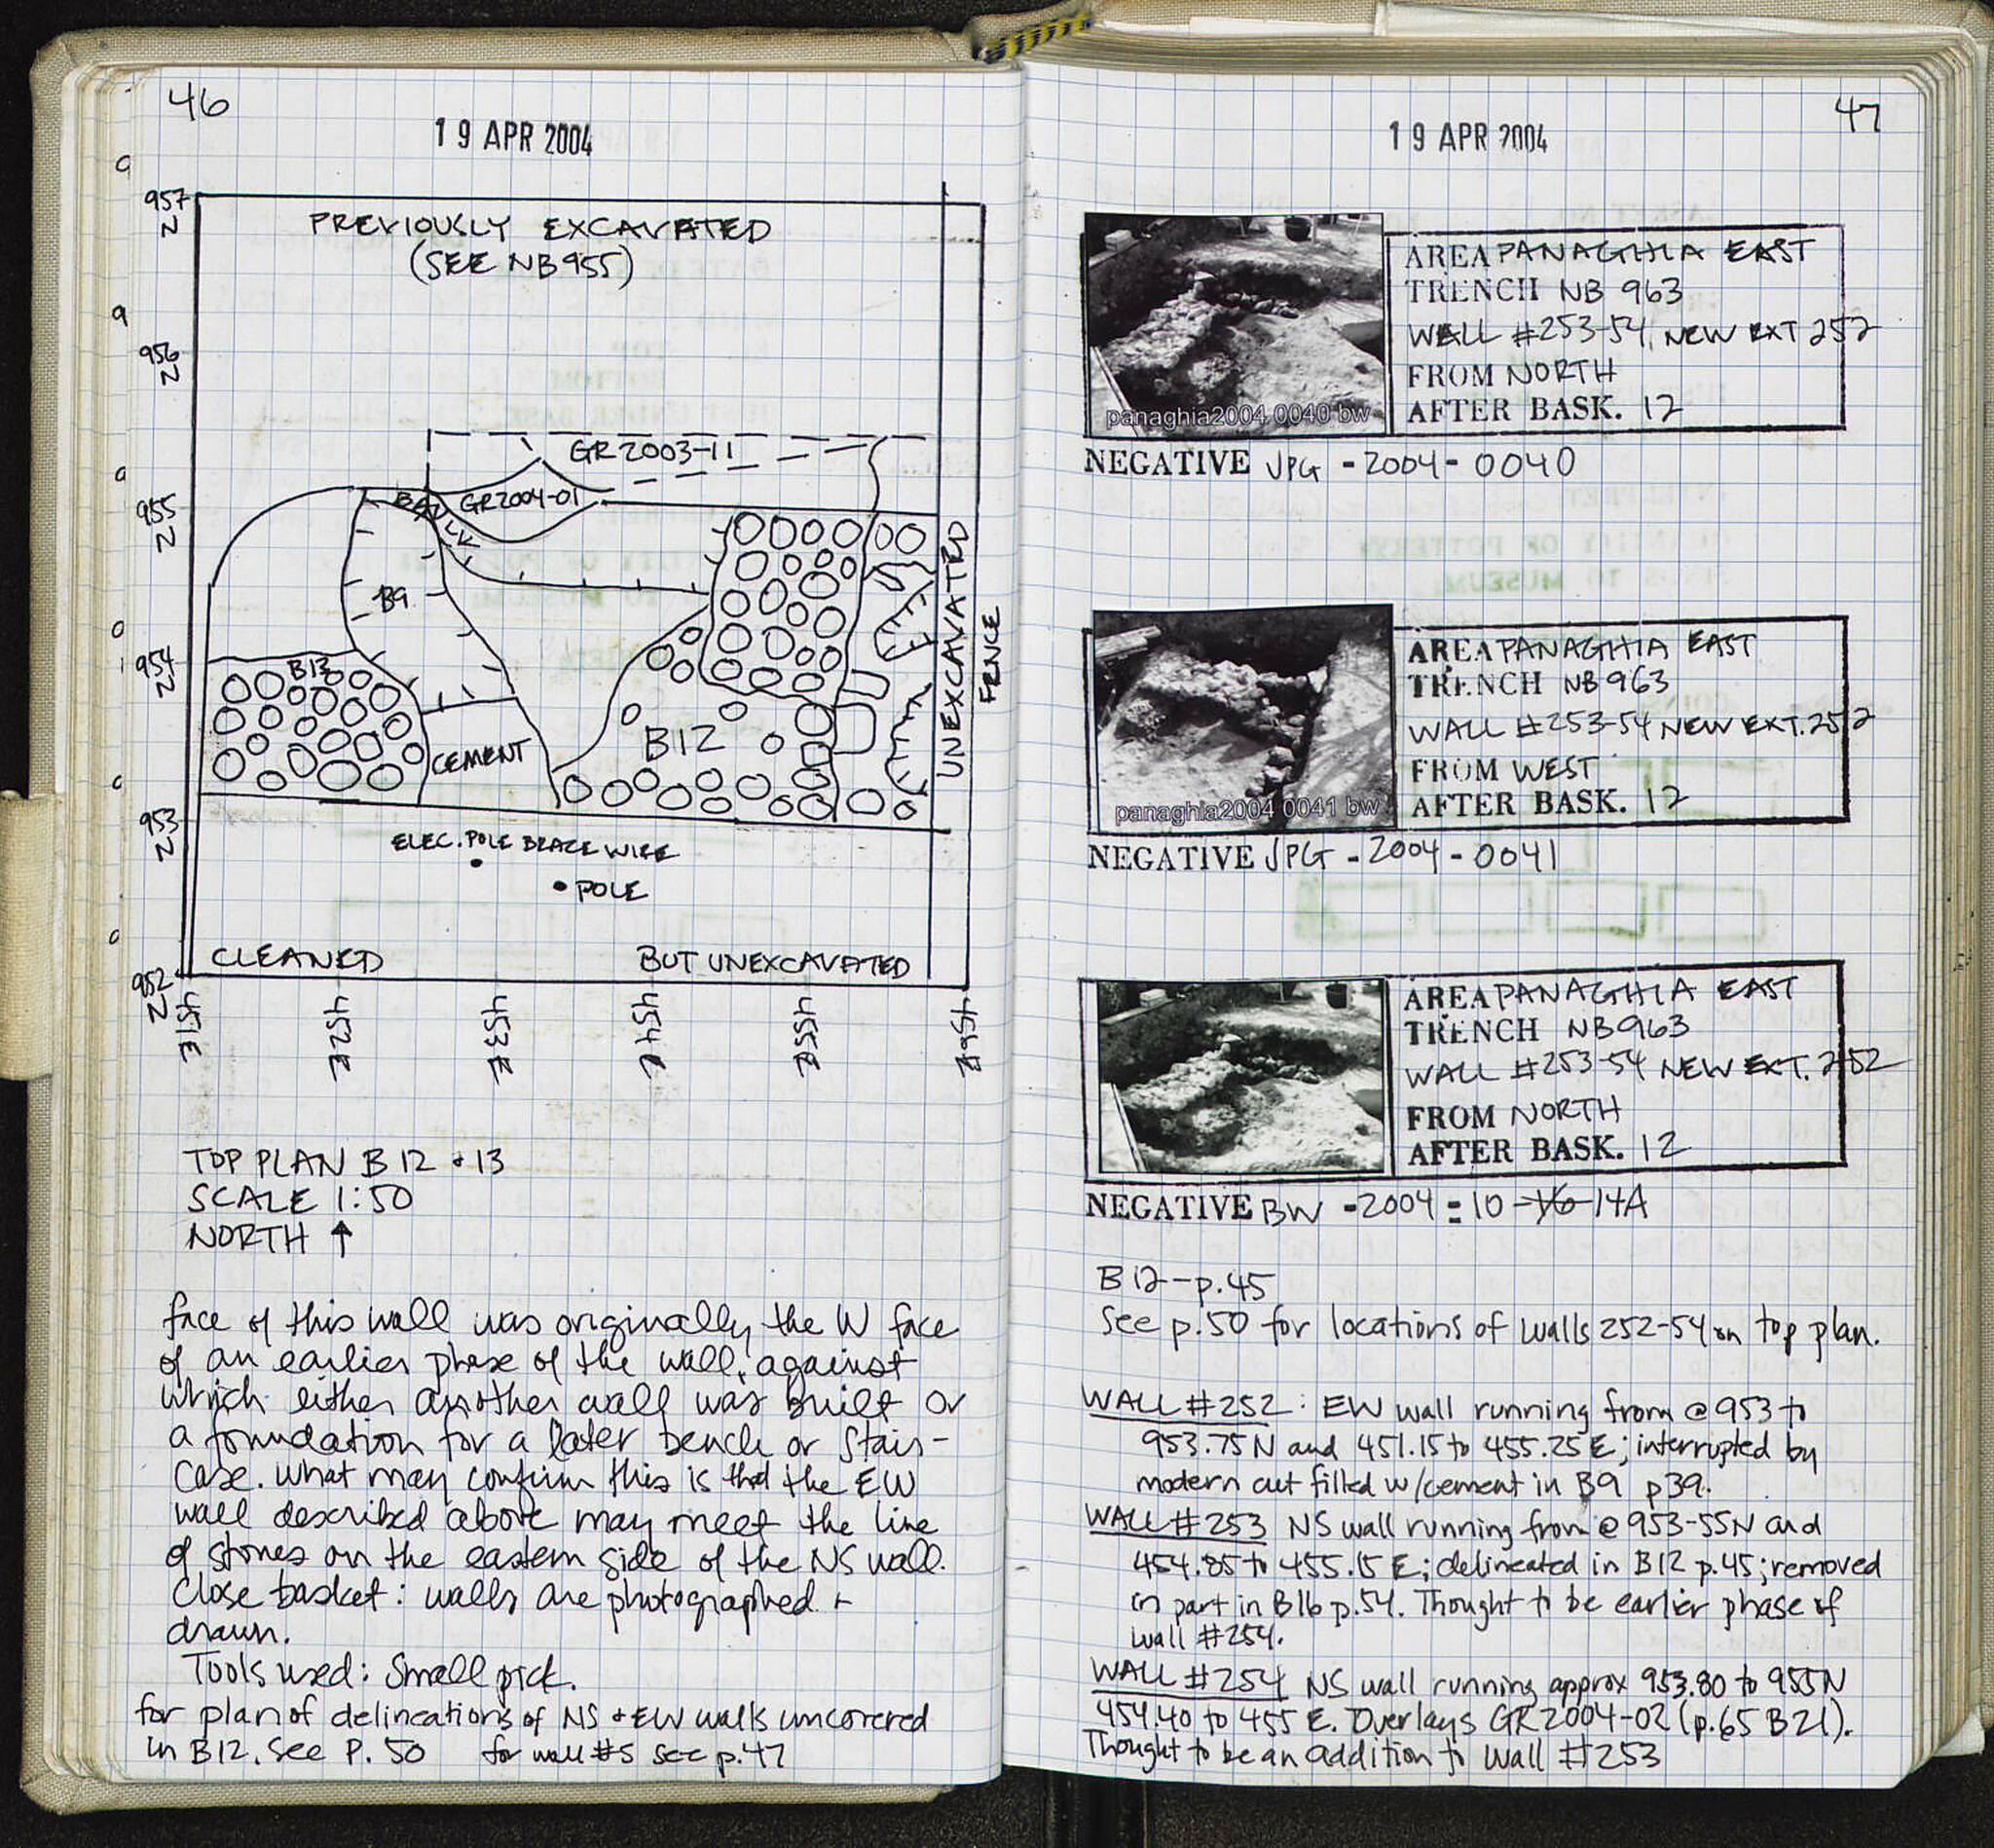 46
19 APR 2004
957 N
PREVIOUSLY EXCAVATED
(SEE NB 955)
956 N
GR 2003-11
955 N
GR2004-01
BALK
B9
954 N
B13
CEMENT
B12
UNEXCAVATED
FENCE
953 N
ELEC. POLE BRACE WIRE
POLE
CLEANED BUT UNEXCAVATED
952 N
451 E
452 E
453 E
454 E
455 E
456 E
TOP PLAN B 12 + 13
SCALE 1:50
NORTH ↑
face of this wall was originally the W face
of an earlier phase of the wall, against
which either another wall was built or
a foundation for a later bench or stair-
case. What may confirm this is that the EW
wall described above may meet the line
of stones on the eastern side of the NS wall.
Close basket: walls are photographed +
drawn.
Tools used: Small pick.
for plan of delineations of NS + EW walls uncovered
in B12, see P. 50 for wall #s see p. 47
47
19 APR 2004
panaghia2004 0040 bw
AREA PANAGHIA EAST
TRENCH NB 963
WALL #253-54, NEW EXT 252
FROM NORTH
AFTER BASK. 12
NEGATIVE JPG - 2004 - 0040
panaghia2004 0041 bw
AREA PANAGHIA EAST
TRENCH NB 963
WALL #253-54 NEW EXT. 252
FROM WEST
AFTER BASK. 12
NEGATIVE JPG - 2004 - 0041
AREA PANAGHIA EAST
TRENCH NB 963
WALL #253-54 NEW EXT. 252
FROM NORTH
AFTER BASK. 12
NEGATIVE BW - 2004 - 10 - 16 14A
B 12 - p. 45
See p. 50 for locations of walls 252-54 on top plan.
WALL #252: EW wall running from @ 953 to
953.75 N and 451.15 to 455.25 E; interrupted by
modern cut filled w/cement in B9 p39.
WALL #253 NS wall running from @ 953-55N and
454.85 to 455.15 E; delineated in B12 p.45; removed
in part in B16 p.54. Thought to be earlier phase of
wall #254.
WALL #254 NS wall running approx 953.80 to 955N
454.40 to 455 E. Overlays GR 2004-02 (p.65 B21).
Thought to be an addition to Wall #253